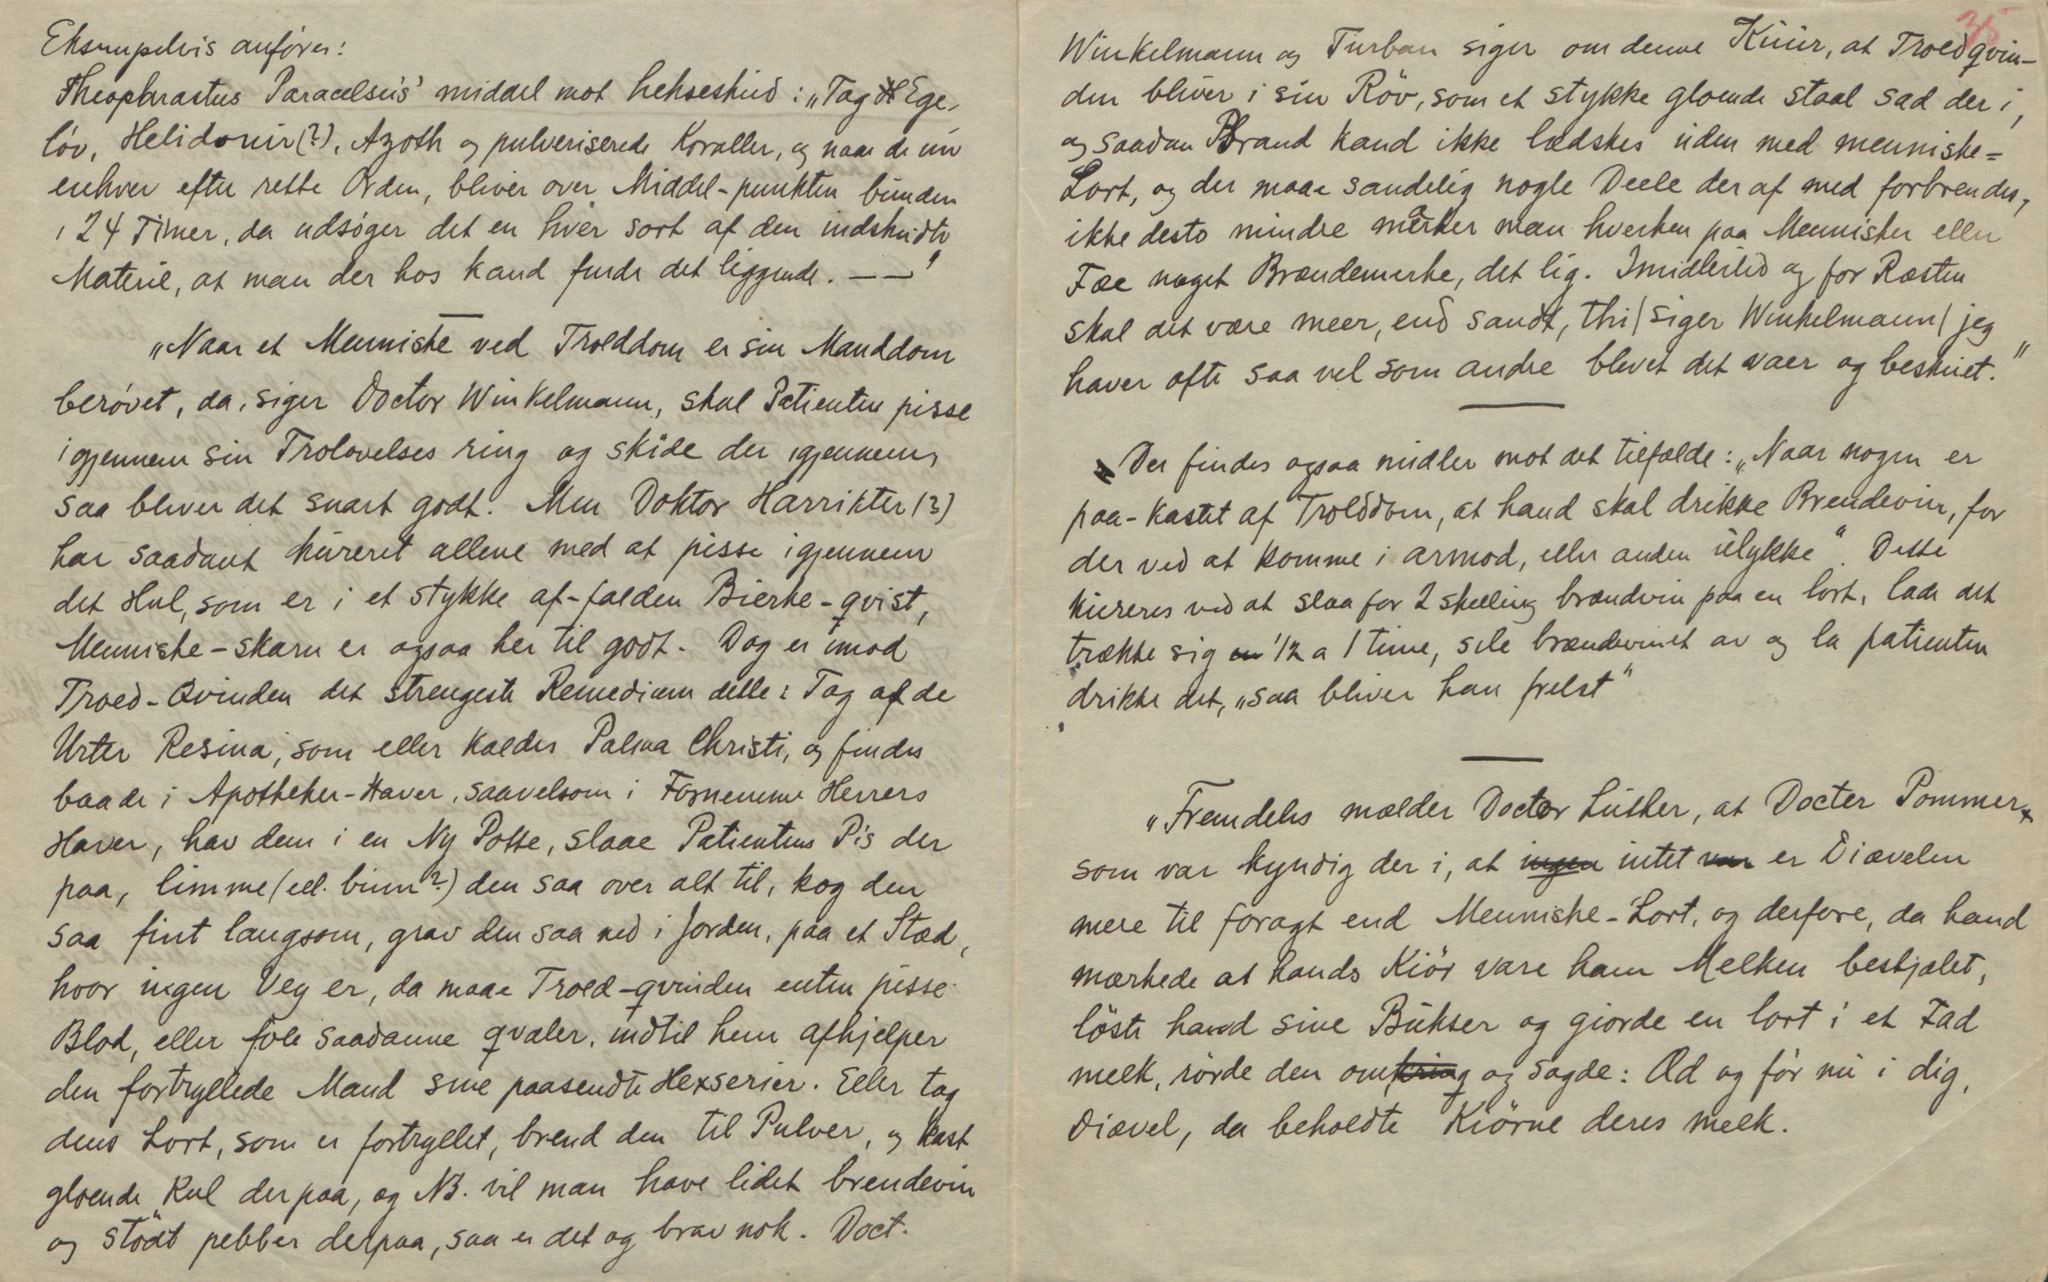 Eksempelvis anføres:
Theophrastus Paracelsus' middel mot hekseskud: „Tag Ege-
løv, Helidonir(?), Azoth og pulveriserede Koraller, og naar de nu
enhver efter rette Orden, bliver over Middel-punkten bunden
i 24 Timer, da udsøger det en hver sort af den indskudte
Materie, at man der hos kand finde det liggende. — —"
„Naar et Menniske ved Trolddom er sin Manddom
berøvet, da, siger Doctor Winkelmann, skal Patienten pisse
igjennem sin Trolovelses ring og skide der igjennem,
saa bliver det snart godt. Men Doktor Harrikter (?)
har saadant kureret allene med at pisse igjennem
det Hul, som er i et stykke af-falden Bierke-qvist,
Menniske-skarn er ogsaa her til godt. Dog er imod
Trold-Qvinden det strengeste Remedium dette: Tag af de
Urter Resina, som eller kaldes Palma Christi, og findes
baade i Apotheker-Haver, saavelsom i Fornemme Herrers
Haver, hav dem i en Ny Potte, slaae Patientens Pis der
paa, limme (ell. binn?) den saa over alt til, kog den
saa fint langsom, grav den saa ned i Jorden, paa et Stæd,
hvor ingen Vey er, da maae Trold-qvinden enten pisse
Blod, eller føle saadanne qvaler, indtil hun afhjelper
den fortryllede Mand sine paasendte Hexserier. Eller tag
dens Lort, som er fortryllet, brend den til Pulver, og kast
gloende Kul derpaa, og NB. vil man have lidet brendevin
og stødt pebber derpaa, saa er det og brav nok. Doct.
35
Winkelmann og Turban siger om denne Kuur, at Troldqvin-
den bliver i sin Røv, som et stykke gloende staal sad der i,
og saadan Brand kand ikke lædskes uden med menniske=
Lort, og der maae sandelig nogle Deele der af med forbrendes,
ikke desto mindre mærker man hverken paa Mennisker eller
Fæe noget Brændemerke, det lig. Imidlertid og for Ræsten
skal det være meer, end sandt, thi / siger Winkelmann / jeg
haver ofte saa vel som andre blevet det vaer og beskuet."
Der findes ogsaa midler mot det tilfælde: „Naar nogen er
paa-kastet af Trolddom, at hand skal drikke Brendevin, for
der ved at komme i armod, eller anden ulykke". Dette
kureres ved at slaa for 2 skelling brændvin paa en lort, lade det
trække sig en 1/2 a 1 time, sile brændevinet av og la patienten
drikke det, „saa bliver han frelst"
„Fremdeles mælder Doctor Luther, at Docter Pommer,
som var kyndig der i, at ingen intet var er Diævelen
mere til foragt end Menniske-Lort, og derfore, da hand
mærkede at hands Kiör vare ham Melken bestjælet,
løste hand sine Bukser og giorde en lort i et Fad
melk, rørde den omkring og sagde: Æd og før nu i dig,
Diævel, da beholdte Kiörne deres melk.